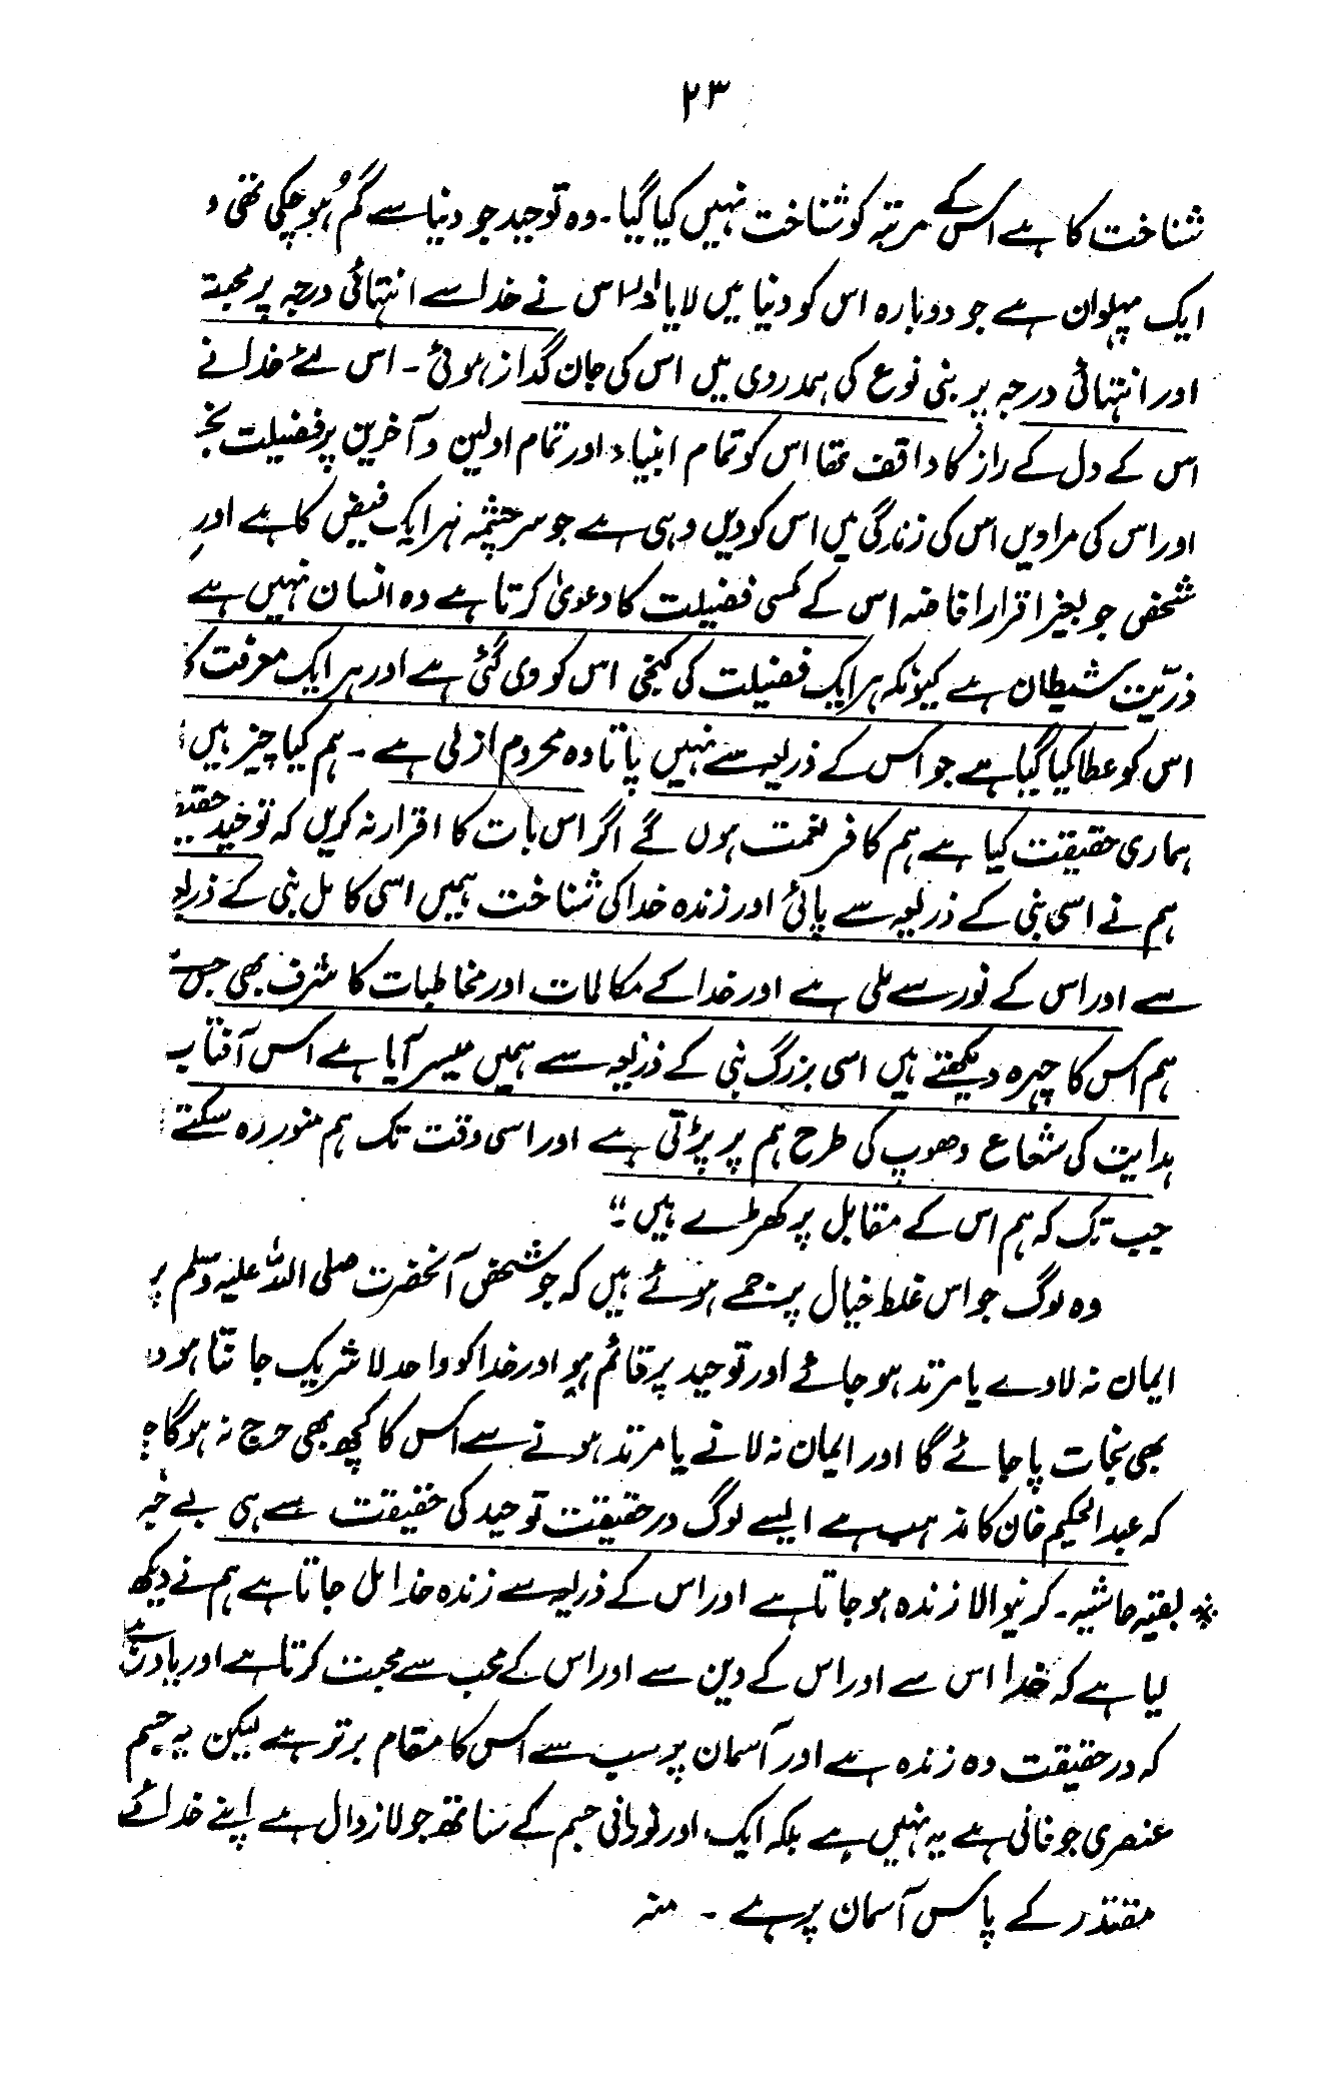 ۲۳
شناخت کا ہے اس کے مرتبہ کو شناخت نہیں کیا گیا۔ وہ توحید جو دنیا سے گم ہو چکی تھی و
ایک پہلوان ہے جو دوبارہ اس کو دنیا میں لایا اور اس نے خدا سے انتہائی درجہ پر محبت
اور انتہائی درجہ پر بنی نوع کی ہمدردی میں اس کی جان گداز ہوئی۔ اس لئے خدا نے
اس کے دل کے راز کا واقف تھا اس کو تمام انبیاء اور تمام اولین و آخرین پر فضیلت
اور اس کی مرادیں اس کی زندگی میں اس کو دیں وہی ہے جو سرچشمہ ہر ایک فیض کا ہے اور
شخص جو بغیر اقرار افاضہ اس کے کسی فضیلت کا دعویٰ کرتا ہے وہ انسان نہیں ہے
ذرّیّت شیطان ہے کیونکہ ہر ایک فضیلت کی کنجی اس کو دی گئی ہے اور ہر ایک معرفت
اس کو عطا کیا گیا ہے جو اس کے ذریعہ سے نہیں پاتا وہ محروم ازلی ہے۔ ہم کیا چیز ہیں
ہماری حقیقت کیا ہے ہم کافر نعمت ہوں گے اگر اس بات کا اقرار نہ کریں کہ توحید
ہم نے اسی نبی کے ذریعہ سے پائی اور زندہ خدا کی شناخت ہمیں اسی کامل نبی کے ذریعہ
سے اور اس کے نور سے ملی ہے اور خدا کے مکالمات اور مخاطبات کا شرف بھی جس
ہم اس کا چہرہ دیکھتے ہیں اسی بزرگ نبی کے ذریعہ سے ہمیں میسر آیا ہے اس آفتاب
ہدایت کی شعاع دھوپ کی طرح ہم پر پڑتی ہے اور اسی وقت تک ہم منور رہ سکتے
جب تک کہ ہم اس کے مقابل پر کھڑے ہیں۔“
وہ لوگ جو اس غلط خیال پر جمے ہوئے ہیں کہ جو شخص آنحضرت صلی اللہ علیہ وسلم پر
ایمان نہ لاوے یا مرتد ہو جائے اور توحید پر قائم ہو اور خدا کو واحد لاشریک جانتا ہو
بھی نجات پا جائے گا اور ایمان نہ لانے یا مرتد ہونے سے اس کا کچھ بھی حرج نہ ہوگا
کہ عبدالحکیم خان کا مذہب ہے ایسے لوگ درحقیقت توحید کی حقیقت سے ہی بے خبر
* بقیہ حاشیہ۔ کرنیوالا زندہ ہو جاتا ہے اور اس کے ذریعہ سے زندہ خدا مل جاتا ہے ہم نے دیکھ
لیا ہے کہ خدا اس سے اور اس کے دین سے اور اس کے محب سے محبت کرتا ہے اور یاد رہے
کہ درحقیقت وہ زندہ ہے اور آسمان پر سب سے اس کا مقام برتر ہے لیکن یہ جسم
عنصری جو فانی ہے یہ نہیں ہے بلکہ ایک اور نورانی جسم کے ساتھ جو لازوال ہے اپنے خدائے
مقتدر کے پاس آسمان پر ہے۔ منہ